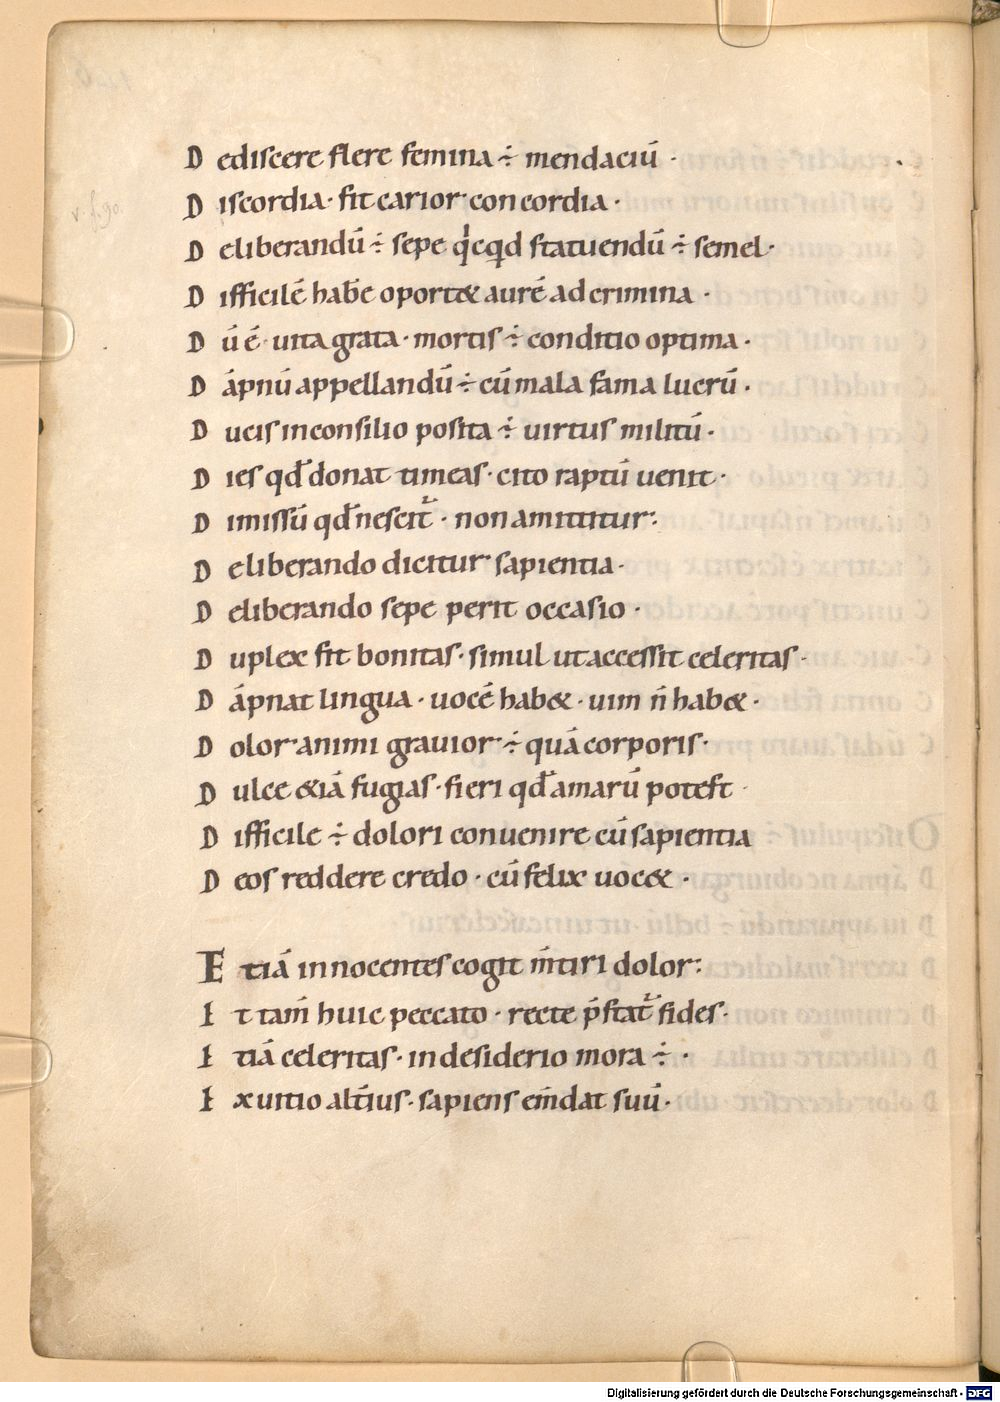 D ediscere flere femina ÷ mendaciū ·
D iscordia · fit carior concordia ·
v. f. 90.
D eliberandū ÷ sepe qͥcqͥd statuendū ÷ semel ·
D ifficilē habe͛ oport& aurē ad crimina ·
D ū ē · uita grata · mortis ÷ conditio optima ·
D āpnū appellandū ÷ cū mala fama lucrū ·
D ucis in consilio posita ÷ uirtus militū ·
D ies qd̄ donat timeas · cito raptū uenit ·
D imissū qd̄ nescit᷑ · non amittitur :
D eliberando dicitur sapientia ·
D eliberando sepe perit occasio ·
D uplex fit bonitas · simul ut accessit celeritas ·
D āpnat lingua · uocē hab& · uim n̄ hab& ·
D olor animi grauior ÷ quā corporis ·
D ulce &iā fugias · fieri qd̄ amarū potest ·
D ifficile ÷ dolori conuenire cū sapientia
D eos reddere credo · cū felix uoc& ·
E tiā innocentes cogit m̄tiri dolor :
I t tam̄ huic peccato · recte p̄stat᷑ fides ·
I tiā celeritas · in desiderio mora ÷ ·
I x uitio alt̄ius · sapiens em̄dat suū ·
Digitalisierung gefördert durch die Deutsche Forschungsgemeinschaft - DFG